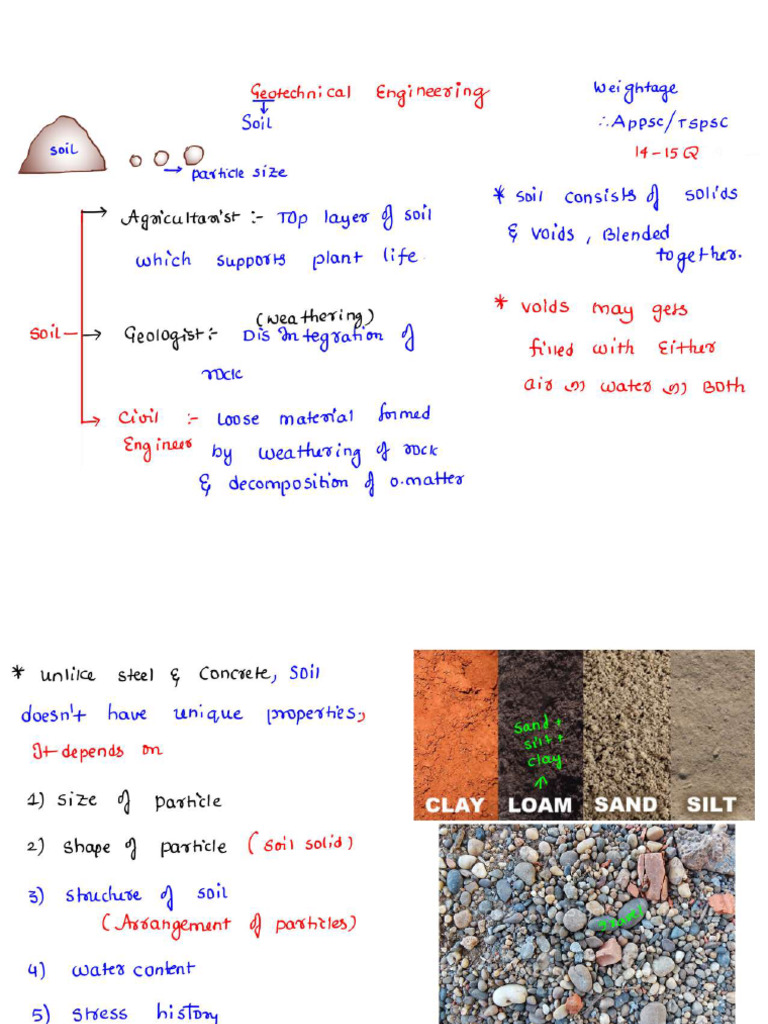 Geotechnical Engineering
Soil
soil
→ particle size
Weightage
∴ Appsc/TSPSC
14-15 Q
* soil consists of solids
& voids, Blended
together.
* voids may gets
filled with Either
air (or) water (or) Both
Soil
Agriculturist :- Top layer of soil
which supports plant life.
(weathering)
Geologist :- Disintegration of
rock
Civil :- Loose material formed
Engineer by weathering of rock
& decomposition of o.matter
* unlike steel & Concrete, soil
doesn't have unique properties,
It depends on
1) size of particle
2) shape of particle (soil solid)
3) structure of soil
(Arrangement of particles)
4) water content
5) stress history
sand +
silt +
clay
CLAY LOAM SAND SILT